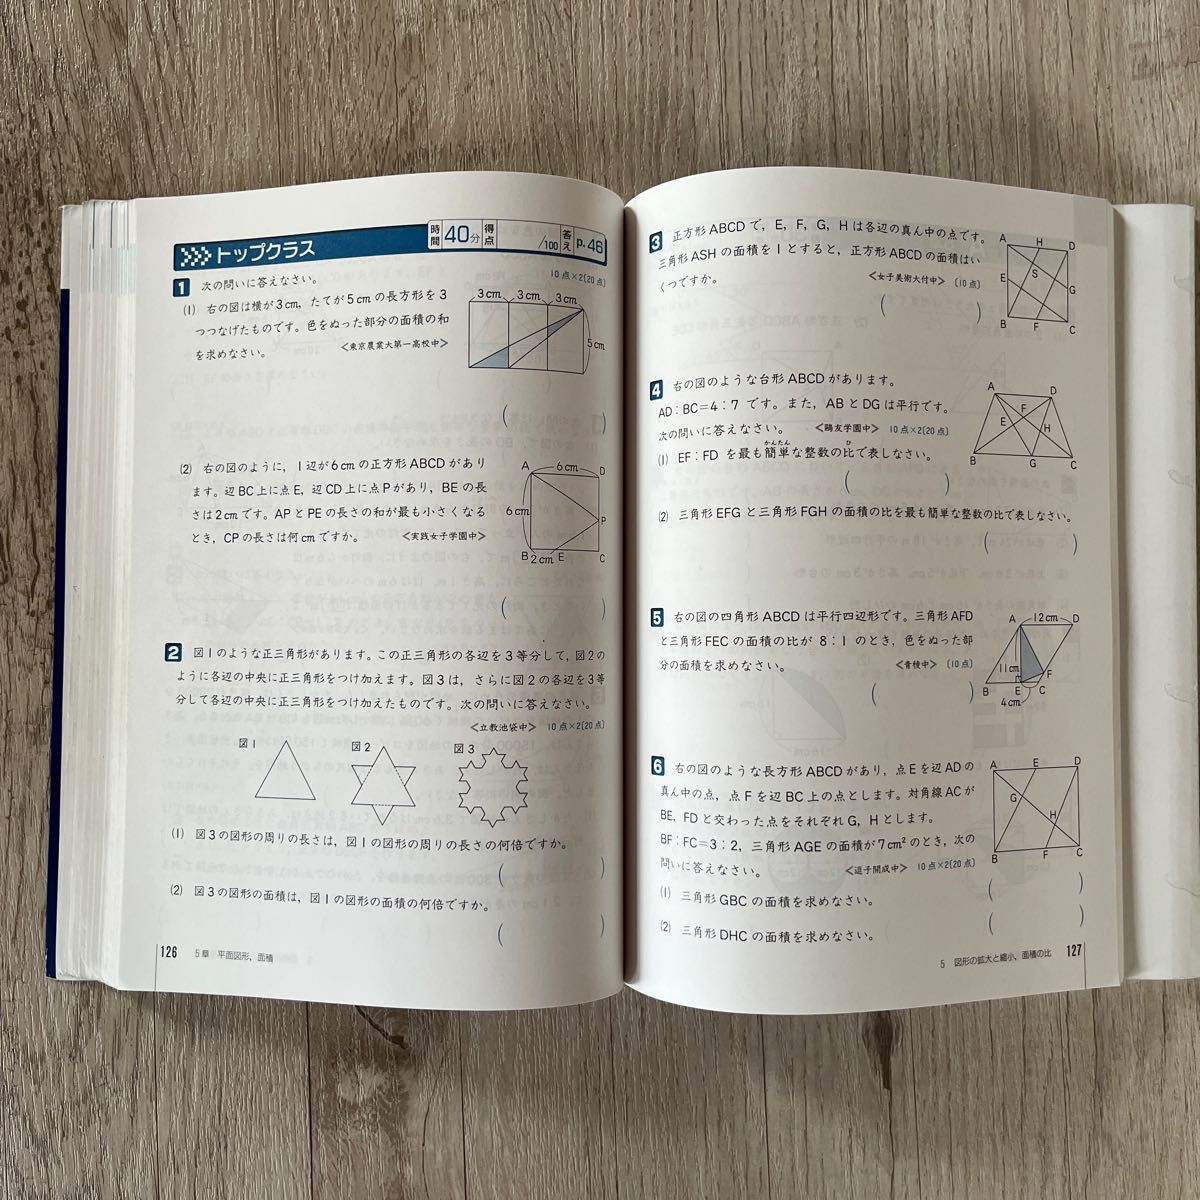 トップクラス
時間 40分 得点 /100 答え p.46
1 次の問いに答えなさい。 10点×2(20点)
(1) 右の図は横が3cm，たてが5cmの長方形を3
つつなげたものです。色をぬった部分の面積の和
を求めなさい。 〈東京農業大第一高校中〉
3cm 3cm 3cm
5cm
( )
(2) 右の図のように，1辺が6cmの正方形ABCDがあり
ます。辺BC上に点E，辺CD上に点Pがあり，BEの長
さは2cmです。APとPEの長さの和が最も小さくなる
とき，CPの長さは何cmですか。 〈実践女子学園中〉
A 6cm D
6cm P
B 2cm E C
( )
2 図1のような正三角形があります。この正三角形の各辺を3等分して，図2の
ように各辺の中央に正三角形をつけ加えます。図3は，さらに図2の各辺を3等
分して各辺の中央に正三角形をつけ加えたものです。次の問いに答えなさい。
〈立教池袋中〉 10点×2(20点)
図1 図2 図3
(1) 図3の図形の周りの長さは，図1の図形の周りの長さの何倍ですか。
( )
(2) 図3の図形の面積は，図1の図形の面積の何倍ですか。
( )
126 5章 平面図形，面積
3 正方形ABCDで，E，F，G，Hは各辺の真ん中の点です。
三角形ASHの面積を1とすると，正方形ABCDの面積はい
くつですか。 〈女子美術大付中〉 (10点)
( )
A H D
E S G
B F C
4 右の図のような台形ABCDがあります。
AD：BC=4：7です。また，ABとDGは平行です。
次の問いに答えなさい。 〈鷗友学園中〉 10点×2(20点)
(1) EF：FDを最も簡単な整数の比で表しなさい。
かんたん ひ
( )
(2) 三角形EFGと三角形FGHの面積の比を最も簡単な整数の比で表しなさい。
( )
A D
F
E H
B G C
5 右の図の四角形ABCDは平行四辺形です。三角形AFD
と三角形FECの面積の比が8：1のとき，色をぬった部
分の面積を求めなさい。 〈青稜中〉 (10点)
( )
A 12cm D
11cm F
B E C
4cm
6 右の図のような長方形ABCDがあり，点Eを辺ADの
真ん中の点，点Fを辺BC上の点とします。対角線ACが
BE，FDと交わった点をそれぞれG，Hとします。
BF：FC=3：2，三角形AGEの面積が7cm²のとき，次の
問いに答えなさい。 〈逗子開成中〉 10点×2(20点)
A E D
G
H
B F C
(1) 三角形GBCの面積を求めなさい。
( )
(2) 三角形DHCの面積を求めなさい。
( )
5 図形の拡大と縮小，面積の比 127